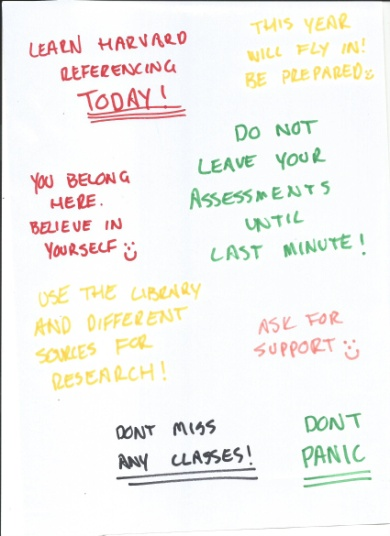 LEARN HARVARD
REFERENCING
TODAY!
THIS YEAR
WILL FLY IN!
BE PREPARED
DO NOT
LEAVE YOUR
ASSESSMENTS
UNTIL
LAST MINUTE!
YOU BELONG
HERE.
BELIEVE IN
YOURSELF
USE THE LIBRARY
AND DIFFERENT
SOURCES FOR
RESEARCH!
ASK FOR
SUPPORT
DONT MISS
ANY CLASSES!
DONT
PANIC